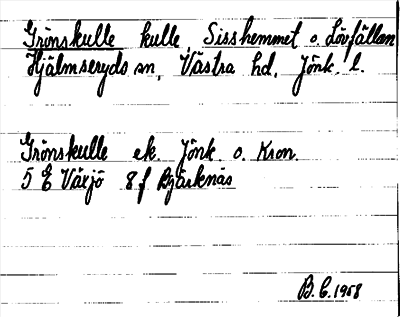 Grönskulle kulle, Sisshemmet o. Lövfällan
Hjälmseryds sn, Västra hd, Jönk. l.
Grönskulle ek. Jönk o. Kron.
5 E Växjö 8 f Bjärknäs
B.C. 1958